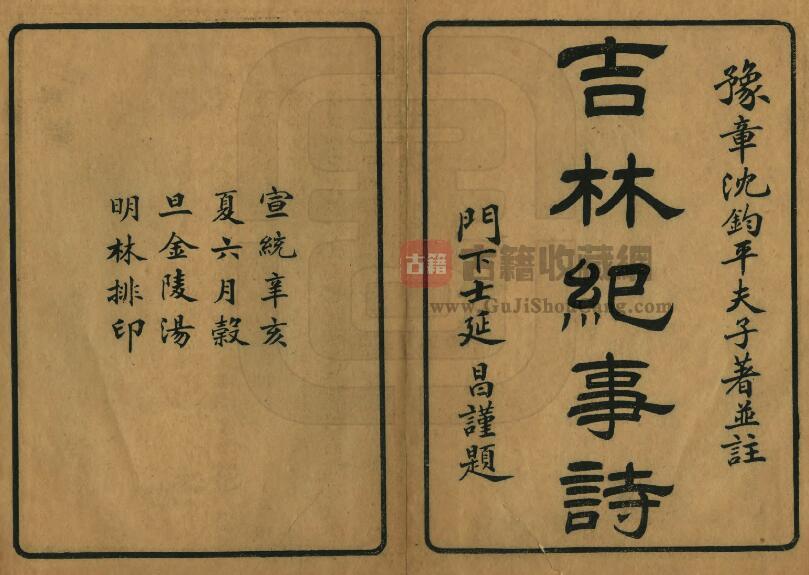 豫章沈鈞平夫子著並註
吉林紀事詩
門下士延昌謹題
宣統辛亥
夏六月穀
旦金陵湯
明林排印
古籍
古籍收藏網
www.GuJiShouCang.com